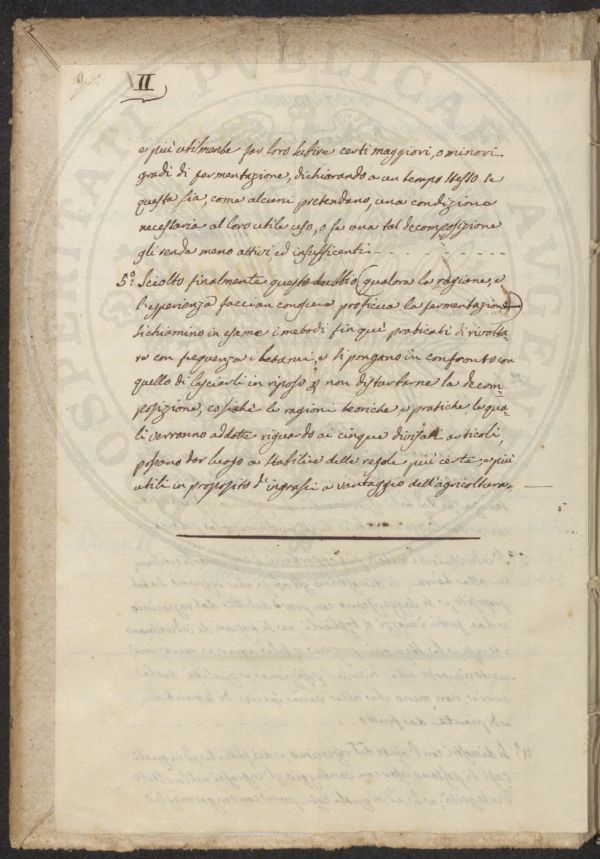 II
e più utilmente far loro subire certi maggiori, o minori
gradi di fermentazione, dichiarando a un tempo stesso se
questa sia, come alcuni pretendano, una condizione
necessaria al loro utile uso, o se una tal decomposizione
gli renda meno attivi ed insufficenti
5.° Sciolto finalmente questo dubbio (qualora la ragione, e
l'esperienza faccian conoscere proficua la fermentazione)
si chiamino in esame i metodi fin qui praticati di rivolta-
re con frequenza i letami, e si pongano in confronto con
quello di lasciarli in riposo p non disturbarne la decom-
posizione, cosichè le ragioni teoriche e pratiche, le qua-
li verranno addotte riguardo ai cinque divisati articoli,
possano dar luogo a stabilire delle regole più certe, e più
utili in proposito d'ingrassi a vantaggio dell'agricoltura.
PROSPERITATI PUBLICAE AUGENDAE